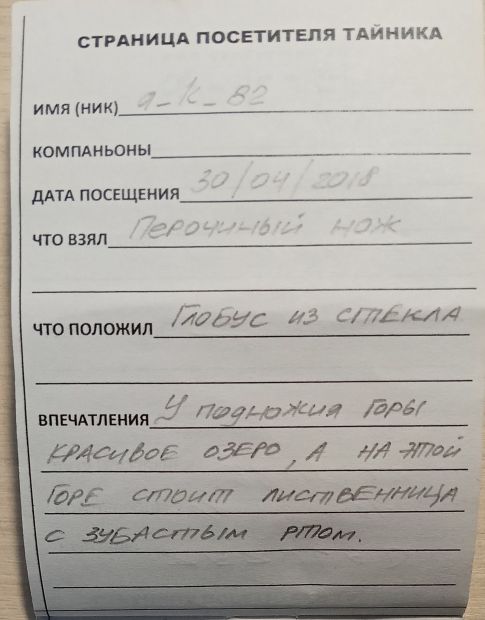 СТРАНИЦА ПОСЕТИТЕЛЯ ТАЙНИКА
ИМЯ (НИК) a_K_82
КОМПАНЬОНЫ
ДАТА ПОСЕЩЕНИЯ 30/04/2018
ЧТО ВЗЯЛ Перочиный нож
ЧТО ПОЛОЖИЛ Глобус из стекла
ВПЕЧАТЛЕНИЯ У подножия горы
красивое озеро, а на этой
горе стоит лиственница
с зубастым ртом.